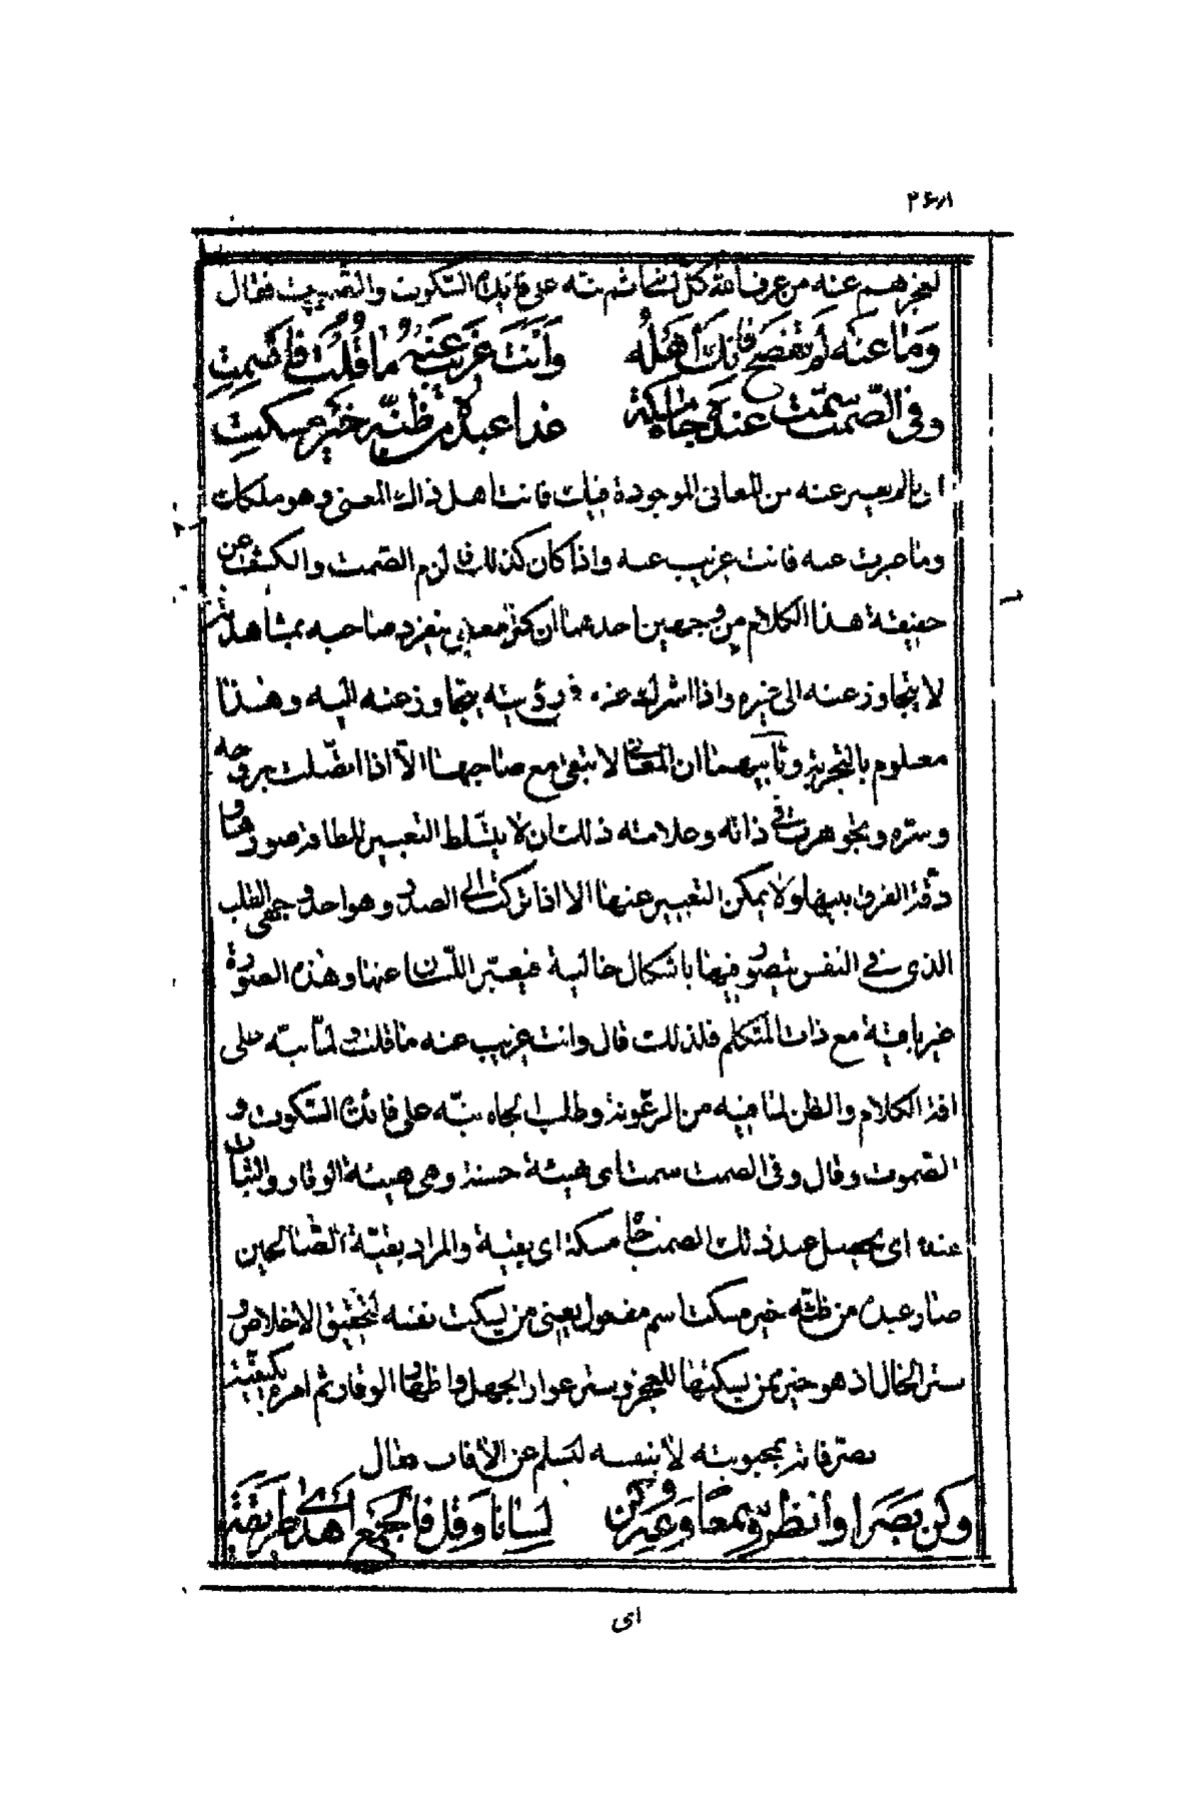 لعجزهم عنه من عرف الله كل لسانه ثم نبّه على فائدة السّكوت والتّصويت فقال
وَمَا عنه لَم تفصح فَإنّك أَهلُه وَأَنتَ غَرِيبٌ عَنهُ مَا قُلتَ فَاصمِتِ
وفى الصّمت سَمتٌ عنده جاه مسكة غدا عبده من ظنّه خير مسكت
اى ما لم يعبر عنه من المعانى الموجودة فيك فانت اهل ذلك المعنى وهو ملكك
وما عبرت عنه فانت غريب عنه واذا كان كذلك فالزم الصّمت والكشف عن
حقيقة هذا الكلام من وجهين احدهما ان كل معنى ينفرد صاحبه بمشاهدته
لا يتجاوز عنه الى غيره واذا اشرك غيره فى رؤيته يتجاوز عنه اليه وهذا
معلوم بالتجربة وثانيهما ان المعانى لا تبقى مع صاحبها الّا اذا اتصّلت بروحه
وسرّه وتجوهرت فى ذاته وعلامة ذلك ان لا يتسلّط التعبير للطافة صورها و
دقّة الفرق بينها ولا يمكن التعبير عنها الا اذا نزلت الى الصدر وهو احد وجهى القلب
الذى فى النفس يتصور فيها باشكال خالية فيعبّر اللّسان عنها وهذه الصّورة
غير باقية مع ذات المتكلم فلذلك قال وانت غريب عنه ما قلت ولمّا نبّه على
افة الكلام والظن لما فيه من الرعونة وطلب الجاه نبّه على فائدة السّكوت و
الصّموت وقال وفى الصمت سمت اى هيئة حسنة وهى هيئة الوقار والثبات
عنده اى يحصل عند ذلك الصمت جاه مسكة اى بقية والمراد بقيّة الصّالحين
صار عبده من ظنّه خير مسكت اسم مفعول يعنى من يسكت نفسه لتحقيق الاخلاص و
ستر الحال اذ هو خير ممن يسكتها للعجز وستر عوار الجهل واظهار الوقار ثم امره بكيفيّة
تصرفاته بمحبوبته لا بنفسه ليسلم عن الافات فقال
وَكن بَصَرا وأنظر وسمعا وَعِه وكن لسانا وَقل فالجمع أهدى طريقة
اى